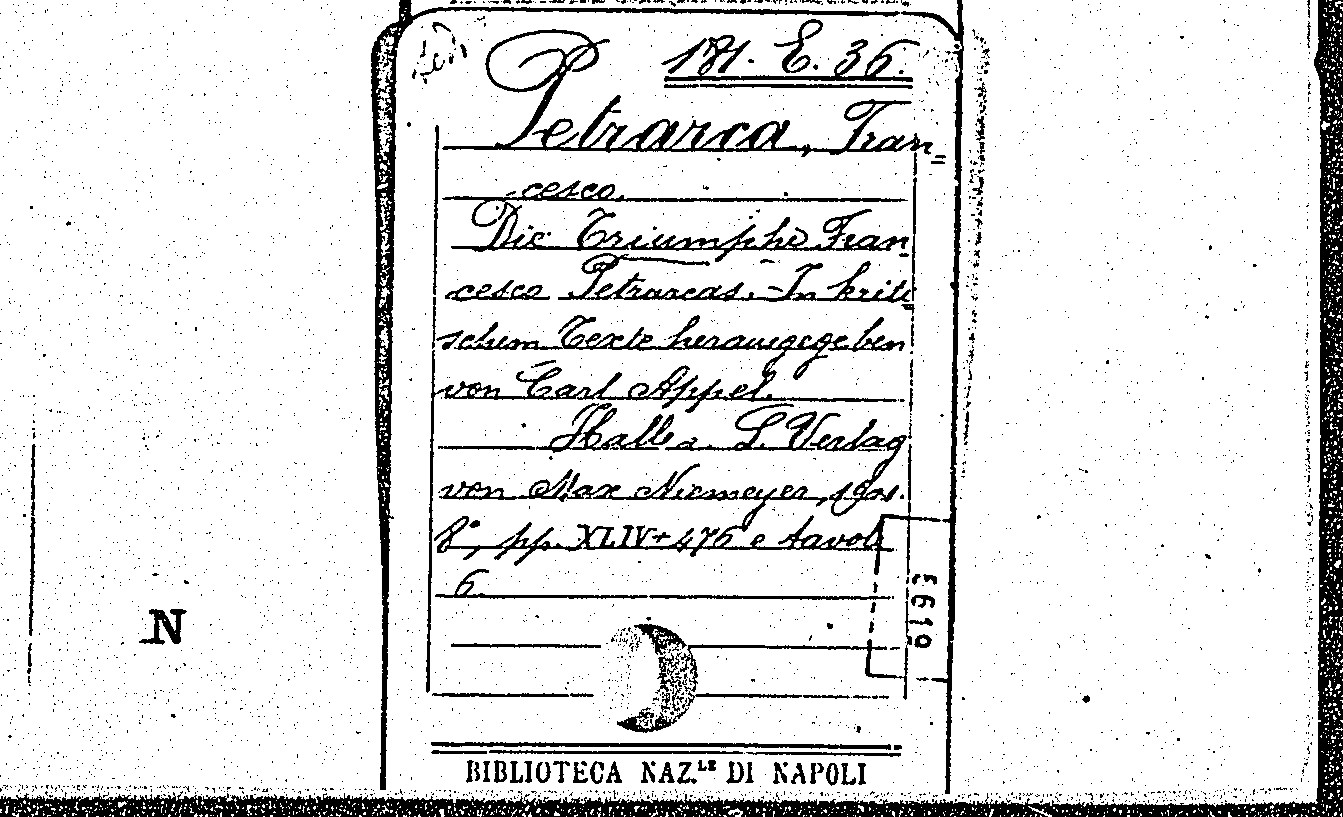 181. E. 36.
Petrarca, Fran=
cesco.
Die Triumphe Fran=
cesco Petrarcas. - In kriti=
schem Texte herausgegeben
von Carl Appel.
Halle a. S. Verlag
von Max Niemeyer, 1901.
8°, pp. XLIV+476 e tavole
6.
N
BIBLIOTECA NAZ.LE DI NAPOLI